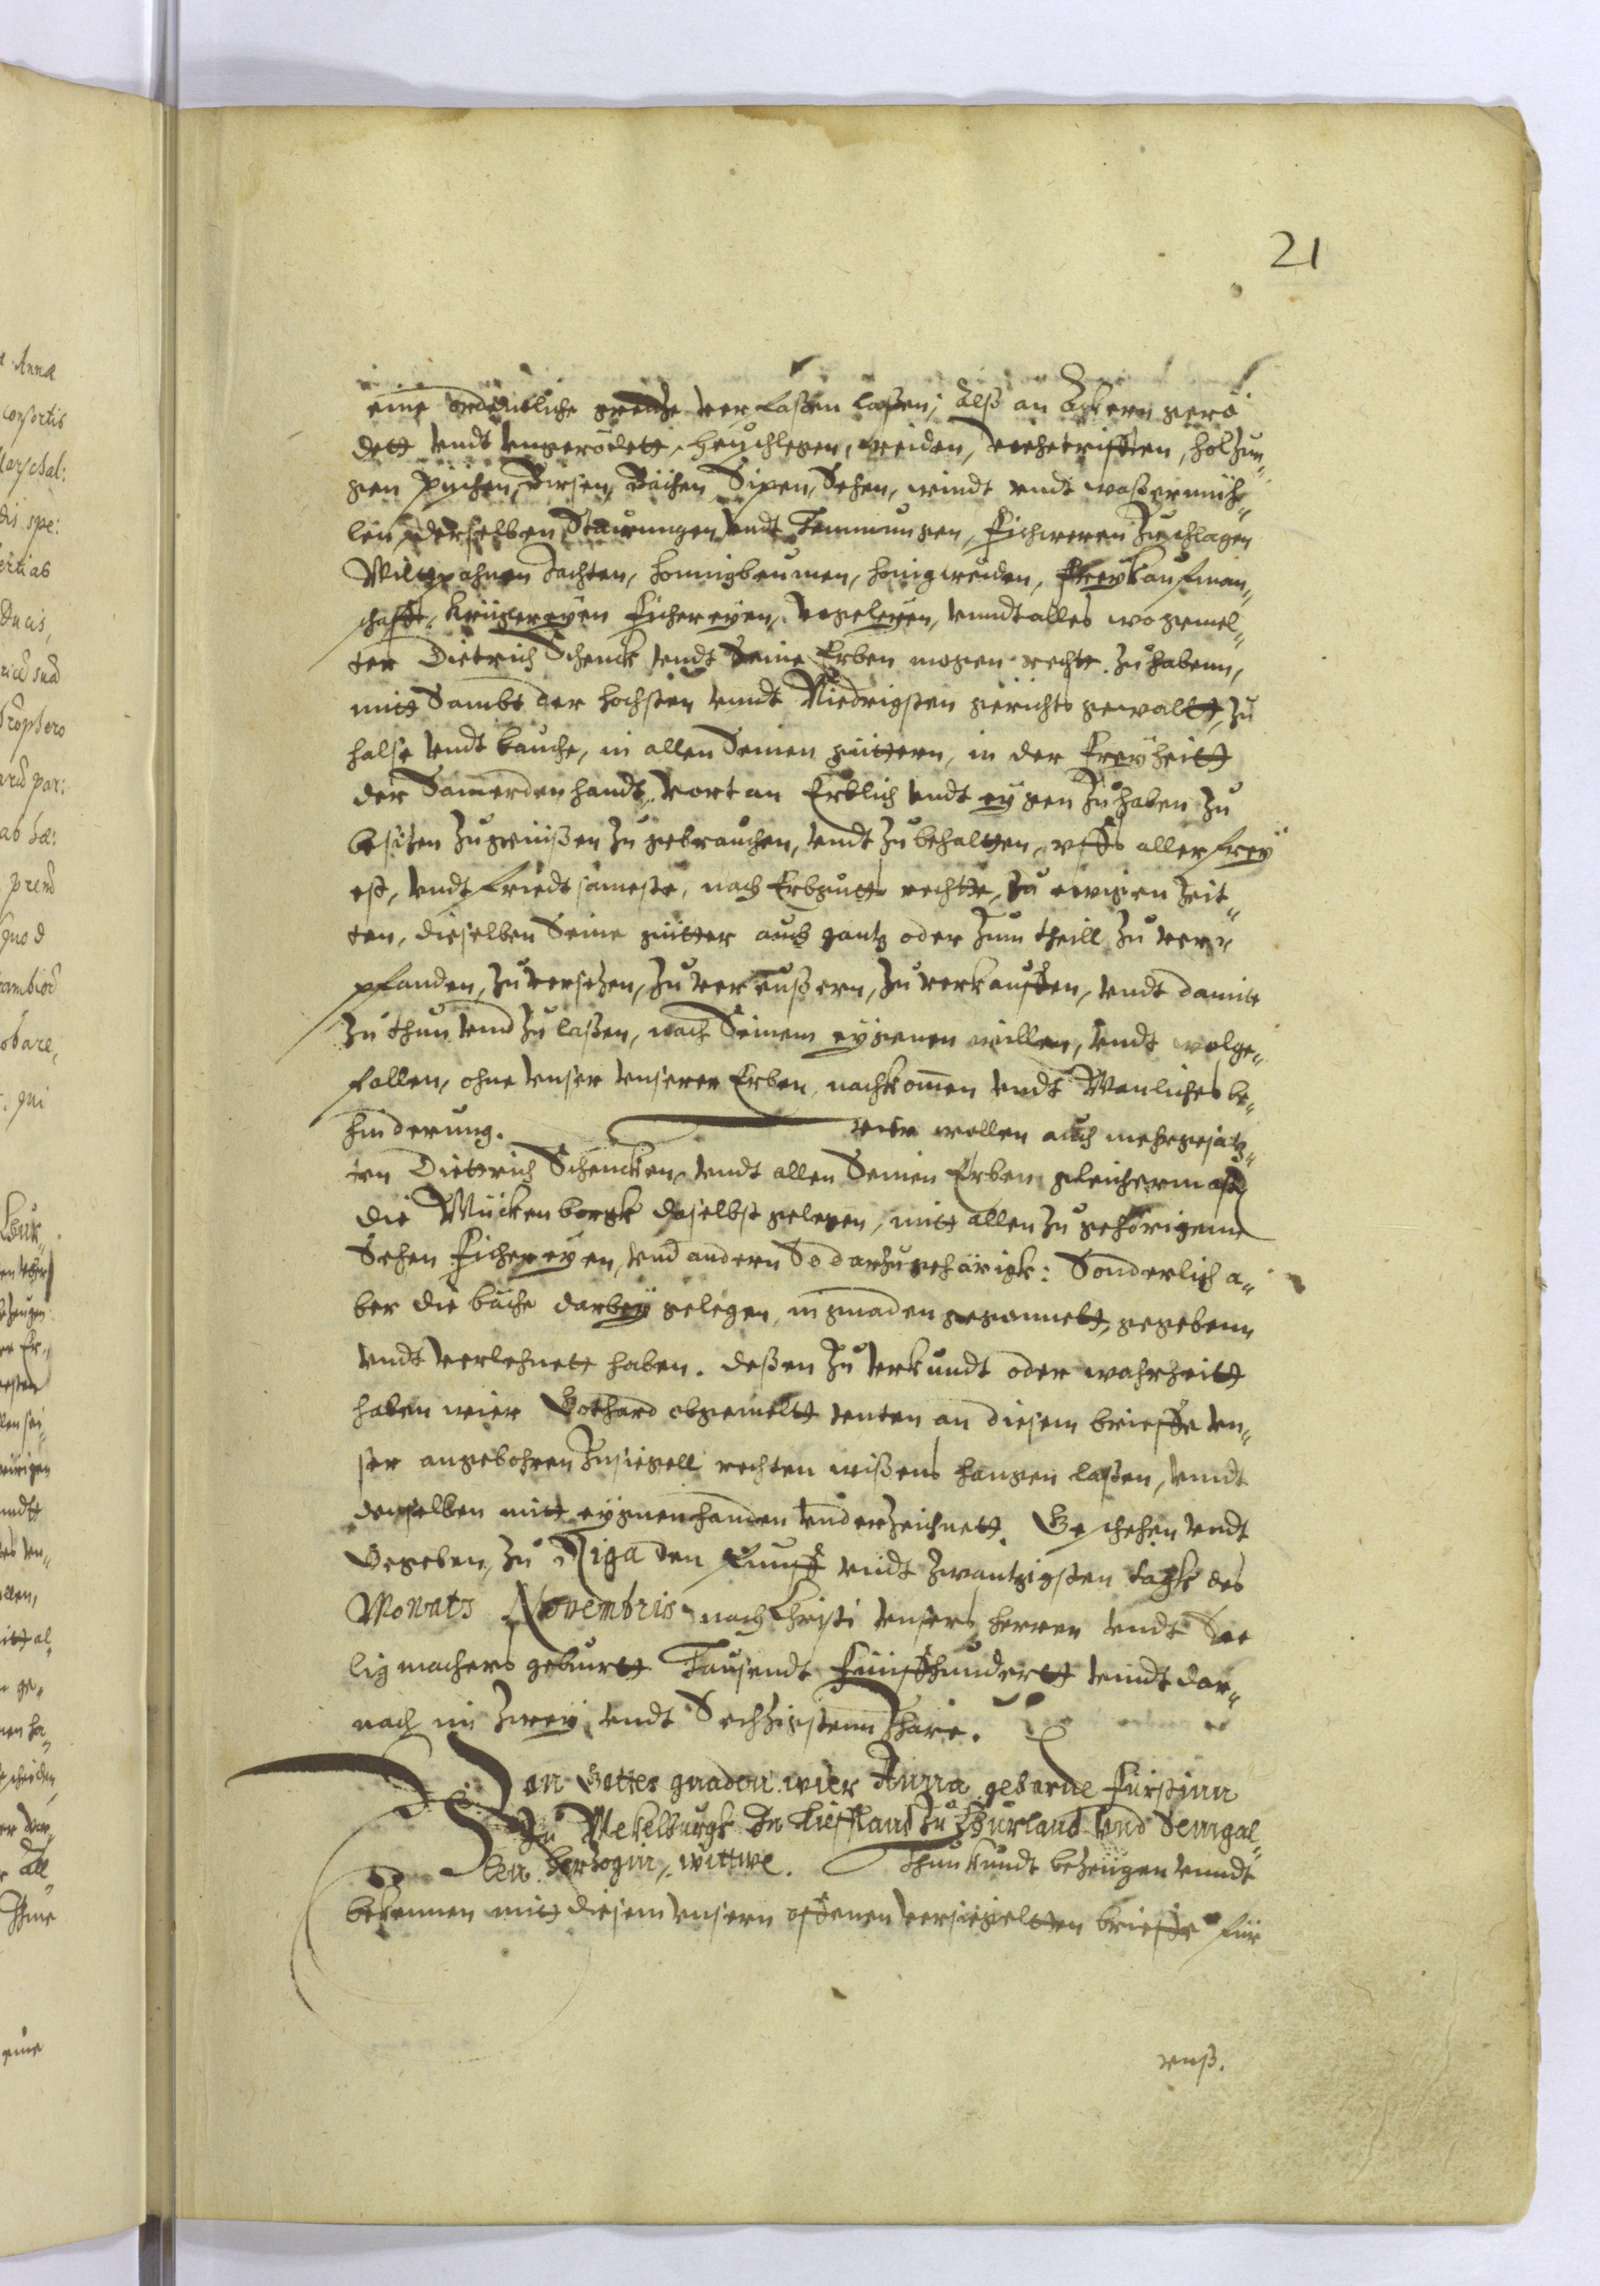 21
eine ordentliche grentze verfaßen laßen; Alß an Äckern gerö
dett vndt vngerödett, heuschlegen, weiden, viehetrifften, holzun„
gen püschen, Birsen, Bächen Sipen, Sehen, windt vndt waßermüh„
len, derselben Stauungen vndt Temmungen, Fischweren Zuschlagen
Wiltpahnen Jachten, honnigbeumen, honigweiden, Freykaufman„
schafft, krügereyen Fischereyen, vogeleyen, vnndt alles wo gemel„
ter Dietrich Schenck vndt Seine Erben mogen rechte zu habenn,
mitt Sambt der hochsten vnndt Niedrigsten gerichts gewaltt, zu
halse vndt bauche, in allen Seinen güttern, in der Freyheitt
der Samenden handt, vort an Erblich vndt eygen zu haben zu
besitzen zu genüßen zu gebrauchen, vndt zu behaltten, vffs aller frey
est, vndt friedtsameste, nach Erbgutts rechtte, zu ewigen Zeit„
ten, dieselben Seine gütter auch gantz oder zum theill zu ver„
pfanden, zu versetzen, zu vereußern, zu verkauffen, vndt damitt
zu thun vnd zu laßen, nach Seinem eygenen willen, vndt wolge„
fallen, ohne vnser vnserer Erben, nachkomen vndt Manliches be„
hinderung. wier wollen auch mehrgesatz„
ten Dietrich Schencken, vndt allen Seinen Erben gleichermaß
die Mückenborgk daselbst gelegen, mitt allen zugehörigenn
Sehen Fischereyen, vnd andern So darzu gehörigk: Sonderlich a„
ber die bäche darbey gelegen, in gnaden gegonnett, gegebenn
vndt verlehnett haben. deßen zu vrkundt oder wahrheitt
haben wier Gothard obgemeltt vnten an diesem brieffe vn„
ser angebohren Insiegell rechten wißens hangen laßen, vnndt
denselben mitt eygnen handen vnderzeichnett. Geschehen vndt
Gegeben, zu Riga den Funff vndt zwantzigsten tagk des
Monats Novembris nach Christi vnsers herren vndt See
ligmachers geburtt Tausendt Fünffhundertt vnndt dar„
nach im Zwey vndt Sechzigstenn Jhare.
Von Gottes gnaden wier Anna geborne Fürstinn
Zu Mekelburgk In Liefflandt Zu Churland vnd Semgal„
len hertzogin, wittwe. Thun kundt bezeugen vnndt
bekennen mitt diesem vnsern offenen versiegeltten brieffe für
vnß.